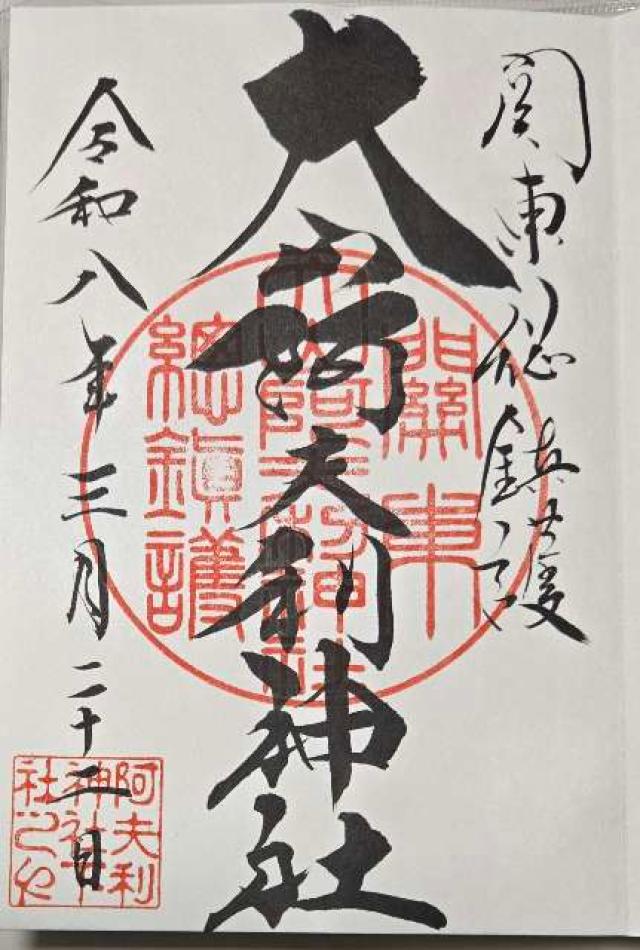 関東総鎮護
大山阿夫利神社
令和八年三月二十二日
關東
大山阿夫利神社
總鎭護
阿夫利
神社下
社之印